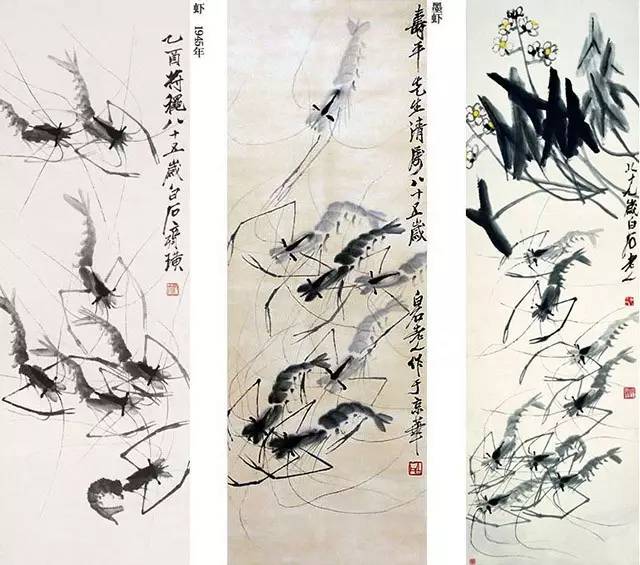 虾 1945年
乙酉將穐八十五歲白石齊璜
墨虾
壽平先生清屬八十五歲
白石老人作于京華
八十九歲白石老人